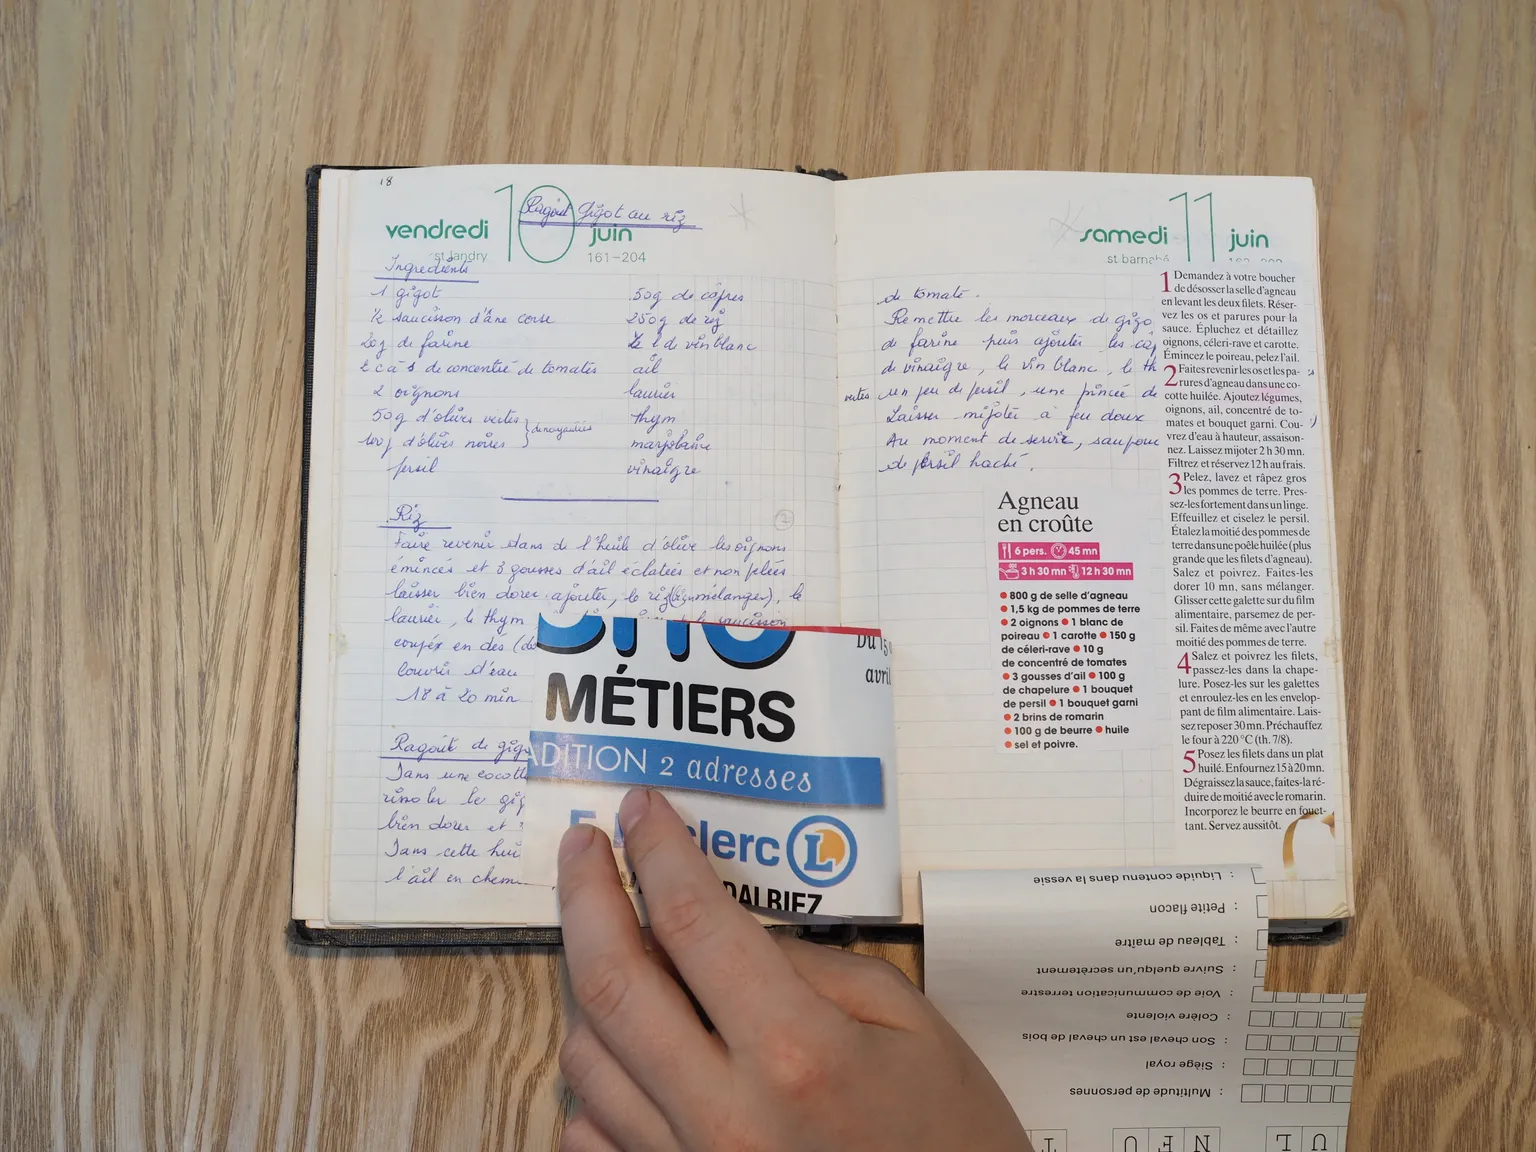 18
vendredi 10 juin
st landry
161-204
Ragout Gigot au riz
Ingredients
1 gigot
½ saucisson d'âne corse
20g de farine
2 c à s de concentré de tomates
2 oignons
50g d'olives vertes
100g d'olives noires
denoyautées
persil
50g de câpres
250g de riz
l de vin blanc
ail
laurier
thym
marjolaine
vinaigre
2
Riz
Faire revenir dans de l'huile d'olive les oignons
émincés et 3 gousses d'ail éclatées et non pelées
laisser bien dorer ajouter, le riz (bien mélanger), le
laurier, le thym le saucisson
coupés en dés (de
Couvrir d'eau
18 à 20 min
Ragoût de gigo
Dans une cocott
rissoler le gig
bien dorer et 3
Dans cette hui
l'ail en chem
MÉTIERS
ADITION 2 adresses
Du 15
avril
E.Leclerc L
DALBIEZ
samedi 11 juin
st barnabé
de tomate.
Remettre les morceaux de gigo
de farine puis ajouter les câp
de vinaigre, le vin blanc, le th
vertes un peu de persil, une pincée de
Laisser mijoter à feu doux
Au moment de servir, saupou
de persil haché.
Agneau
en croûte
6 pers. 45 mn
3 h 30 mn 12 h 30 mn
● 800 g de selle d'agneau
● 1,5 kg de pommes de terre
● 2 oignons ● 1 blanc de
poireau ● 1 carotte ● 150 g
de céleri-rave ● 10 g
de concentré de tomates
● 3 gousses d'ail ● 100 g
de chapelure ● 1 bouquet
de persil ● 1 bouquet garni
● 2 brins de romarin
● 100 g de beurre ● huile
● sel et poivre.
1 Demandez à votre boucher
de désosser la selle d'agneau
en levant les deux filets. Réser-
vez les os et parures pour la
sauce. Épluchez et détaillez
oignons, céleri-rave et carotte.
Émincez le poireau, pelez l'ail.
2 Faites revenir les os et les pa-
rures d'agneau dans une co-
cotte huilée. Ajoutez légumes,
oignons, ail, concentré de to-
mates et bouquet garni. Cou-
vrez d'eau à hauteur, assaison-
nez. Laissez mijoter 2 h 30 mn.
Filtrez et réservez 12 h au frais.
3 Pelez, lavez et râpez gros
les pommes de terre. Pres-
sez-les fortement dans un linge.
Effeuillez et ciselez le persil.
Étalez la moitié des pommes de
terre dans une poêle huilée (plus
grande que les filets d'agneau).
Salez et poivrez. Faites-les
dorer 10 mn, sans mélanger.
Glisser cette galette sur du film
alimentaire, parsemez de per-
sil. Faites de même avec l'autre
moitié des pommes de terre.
4 Salez et poivrez les filets,
passez-les dans la chape-
lure. Posez-les sur les galettes
et enroulez-les en les envelop-
pant de film alimentaire. Lais-
sez reposer 30 mn. Préchauffez
le four à 220 °C (th. 7/8).
5 Posez les filets dans un plat
huilé. Enfournez 15 à 20 mn.
Dégraissez la sauce, faites-la ré-
duire de moitié avec le romarin.
Incorporez le beurre en fouet-
tant. Servez aussitôt.
Liquide contenu dans la vessie :
Petite flacon :
Tableau de maître :
Suivre quelqu'un secrètement :
Voie de communication terrestre :
Colère violente :
Son cheval est un cheval de bois :
Siège royal :
Multitude de personnes :
T U F N L U